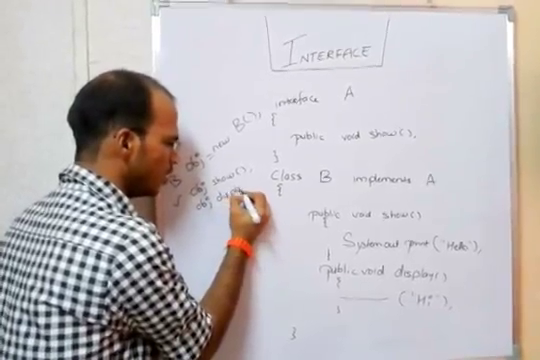 INTERFACE
interface A
{
public void show();
}
class B implements A
{
public void show()
{
System out print ("Hello");
}
public void display()
{
("Hi");
}
}
B obj = new B();
obj show();
obj displ